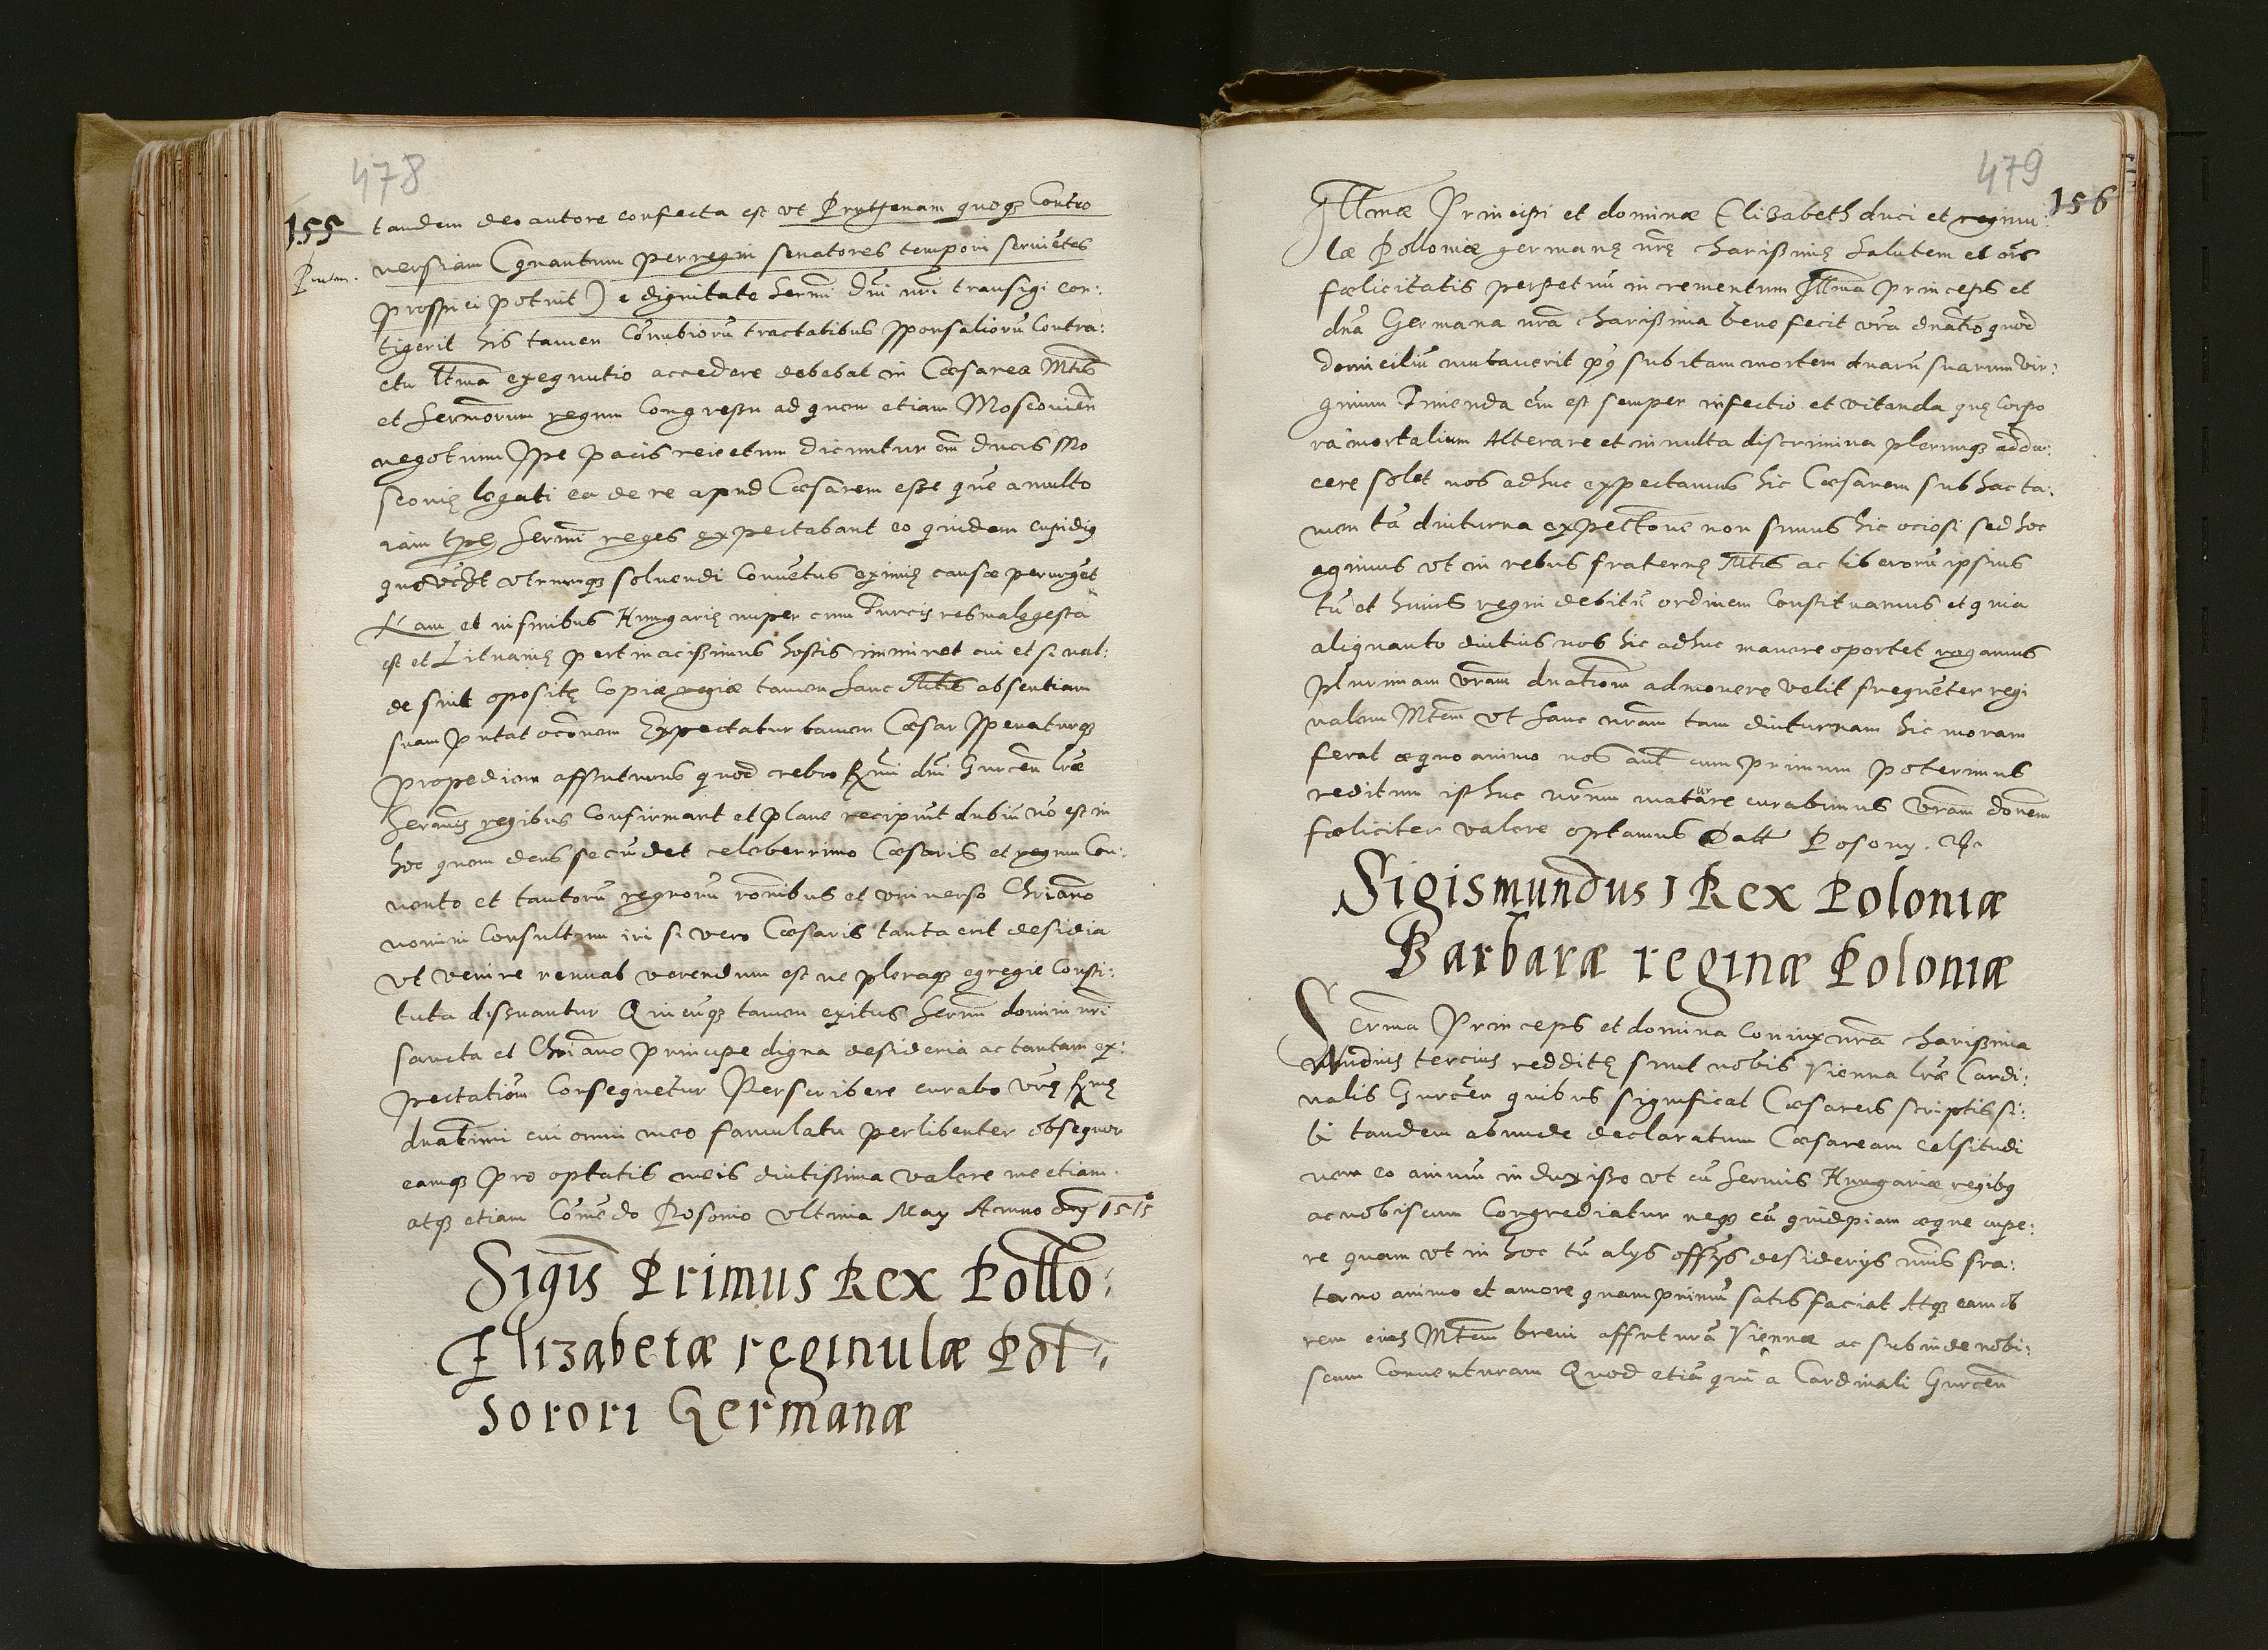 478
155
tandem deo autore confecta est vt Pruthenam quoqȝ Contro
Pruten.
versiam (quantum per regni senatores tempori seruiẽtes
prospici potuit) e dignitate sermi Dni nri transigi con:
tigerit his tamen Conubiorũ tractatibus sponsaliorũ Contra:
ctu ltma exequutio accedere debebat in Cæsareæ Mtis
et sermorum regum Congressu ad quem etiam Moscouien
negotium spe pacis reiectum dicuntur em ducis Mo
scouię legati ea de re apud Cæsarem esse que a multo
iam tpe sermi reges expectabant eo quidem cupidiq
vtrumqȝ soluendi Conuẽtus eximię causæ perurgẽt
Nam et in finibus Hungarię nuper cum Turcis res malę gesta
est et Lituanię pertinacissimus hostis iminet cui et si val:
de sint opositę Copiæ regiæ tamen hanc Mtis absentiam
suam putat occõnem Expectatur tamen Cæsar speraturqȝ
propediem affuturus quod crebro Rmi dni Gurcen lræ
Sermis regibus Confirmant et plane recipiũt dubiũ nõ est in
hoc quem deus secũdet celeberrimo Cæsaris et regum Con:
uentu et tantorũ regnorũ rõnibus et vniuerso Chriano
nomini Consultum iri si vero Cæsaris tanta erit desidia
vt venire renuat verendum est ne pleraqȝ egregie Consti:
tuta dissuantur Quicũqȝ tamen exitus sermi domini nri
sancta et Chriano principe digna desideria ac tantam ex:
pectatiõm Consequetur Perscribere curabo vrę Rmę
dnatiõni cui omni meo famulatu perlibenter obsequor
eamqȝ pro optatis meis diutissima valere me etiam
atqȝ etiam Cõmẽdo Posonio vltima May Anno dny 1515
Sigis Primus Rex Pollo:
Elizabetæ reginulæ Pol:
sorori Germanæ
479
156
Illmæ Principi et dominæ Elizabeth duci et reginu:
læ Polloniæ germanę nrę charissimę salutem et oĩs
fœlicitatis perpetuũ incrementum Illma princeps et
dna Germana nra charissima bene fecit vra dnatio quod
domiciliũ mutauerit pꝫ subitam mortem duarũ suarum vir:
ginum Timenda em est semper infectio et vitanda quę Corpo
ra mortalium Alterare et in multa discrimina plerumqȝ addu:
cere solet nos adhuc expectamus hic Cæsarem sub hac ta:
men tã diuturna expectõne non sumus hic ociosi sed hoc
agimus vt in rebus fraternę Mtis ac liberorũ ipsius
tũ et huius regni debitũ ordinem Constituamus et quia
aliquanto diutius nos hic adhuc manere oportet rogamus
plurimam vram dnatiõm admonere velit frequẽter regi
nalem Mtem vt hanc nram tam diuturnam hic moram
ferat æquo animo nos aut cum primum poterimus
reditum isthuc nrum maturare curabimus vram dõnem
fœliciter valere optamus Datt Posony. &c
Sigismundus I Rex Poloniæ
Barbaræ reginæ Poloniæ
Serma Princeps et domina Coniux nra charissima
Nudius tercius redditę sunt nobis Vienna lræ Cardi:
nalis Gurcen quibus significat Cæsareis scriptis si:
bi tandem abunde declaratum Cæsaream Celsitudi
nem eo animũ induxisse vt cũ sermis Hungariæ regibꝫ
ac nobiscum Congrediatur neqȝ eã quidpiam æque cupe:
re quam vt in hoc tũ alys offỹs desiderys nris fra:
terno animo et amore quamprimũ satisfaciat Atqȝ eam ob
rem eius Mtem breui affuturã Viennæ ac subinde nobi:
scum Conuenturam Quod etiã qui a Cardinali Gurcen